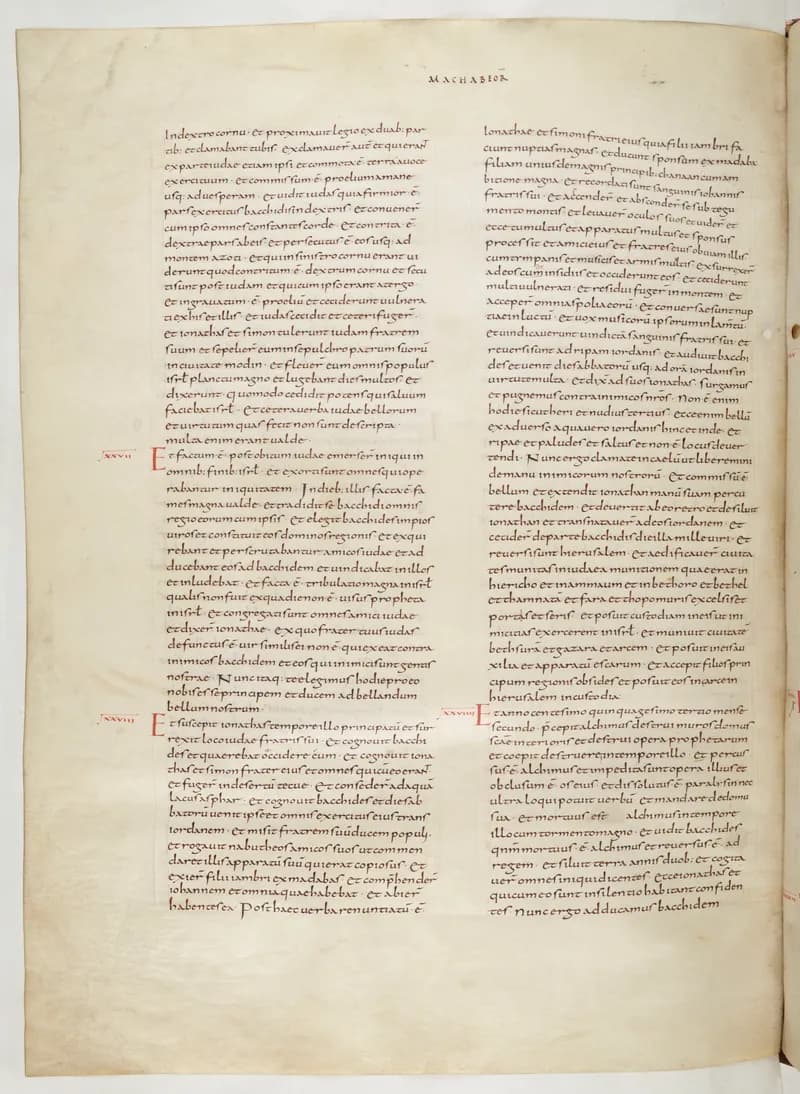 MACHABIOR̄
In dextro cornu · Et proximauit legio ex duab: par
tib: et clamabant tubis exclamauer̄ aut̄ et qui eran̄t
ex parte iudae etiam ipsi et commota ē terra a uoce
exercituum · Et commissum ē proelium a mane
usq: ad uesperam · Et uidit iudas quia firmior ē
pars exercitus bacchidis in dextris et conuener̄
cum ipso omnes constantes corde · Et contrita ē
dextera pars ab eis et persecutus ē eos usq: ad
montem azoti · Et qui in sinistro cornu erant ui
derunt quod contritum ē dextrum cornu et secu
ti sunt post iudam et qui cum ipso erant a tergo
Et ingrauatum ē proeliū et ceciderunt uulnera
ti ex his et illis · et iudas cecidit et ceteri fuger̄ ·
et ionathas et simon tulerunt iudam fratrem
suum et sepelier̄ eum in sepulchro patrum suorū
in ciuitate modin · Et fleuer̄ eum omnis populus
isrł planctu magno et lugebant dies multos et
dixerunt quomodo cecidit potens qui saluum
faciebat isrł · Et cetera uerba iudae bellorum
et uirtutum quas fecit non sunt descripta ·
multa enim erant ualde ·
xxvii Et factum ē · post obitum iudae emerser̄ iniqui in
omnib: finib: isrł · Et exorti sunt omnes qui ope
rabantur iniquitatem · In dieb: illis facta ē fa
mes magna ualde · et tradidit se bacchidi omnis
regio eorum cum ipsis · Et elegit bacchides impios
uiros et constituit eos dominos regionis · et exqui
rebant et perscrutabantur amicos iudae et ad
ducebant eos ad bacchidem et uindicabat in illos
et inludebat · Et facta ē · tribulatio magna in isrł
qualis non fuit ex qua die non ē · uisus propheta
in isrł · Et congregati sunt omnes amici iudae
et dixer̄ ionathae · ex quo frater tuus iudas
defunctus ē uir similis ei non ē qui exeat contra
inimicos bacchidem et eos qui inimici sunt gentis
nostrae · Nunc itaq: te elegimus hodie pro eo
nobis esse principem et ducem ad bellandum
bellum nostrum ·
xxviii Et suscepit ionathas tempore illo principatū et sur
rexit loco iudae fratris sui · Et cognouit bacchi
des et quaerebat occidere eum · Et cognouit iona
thas et simon frater eius et omnes qui cū eo eran̄t
et fuger̄ in desertū tecue · Et consederad aquā
lacus asphar · Et cognouit bacchides et die sab
batorū uenit ipse et omnis exercitus eius trans
iordanem · Et misit fratrem suū ducem populi ·
et rogauit nabutheos amicos suos ut commen
daret illis apparatū suū qui erat copiosus · Et
exier̄ filii iambri ex madabas et comphender̄
iohannem et omnia quae habebat · Et abier̄
habentes ea Post haec uerba renuntiatū ē
Ionathae et simoni fratri eius quia filii iambri fa
ciunt nuptias magnas et ducunt sponsam ex madaba
filiam unius de magnis principib: chanaan cum am
bitione magna · Et recordati sunt sanguinis iohannis
fratris sui · et ascender̄ et absconder̄ se sub tegu
mento montis et leuauer̄ oculos suos et uider̄ et
ecce tumultus et apparatus multus et sponsus
processit et amici eius et fratres eius obuiam illis
cum tympanis et musicis et armis multis et surrexer̄
ad eos cum insidiis et occiderunt eos et ceciderunt
multi uulnerati · Et residui fuger̄ in montem et
acceper̄ omnia spolia eorū · Et conuersae sunt nup
tiae in luctū · Et uox musicorū ipsorum in lamtū ·
et uindicauerunt uindictā sanguinis fratris sui et
reuersi sunt ad ripam iordanis · Et audiuit bacchi
des et uenit die sabbatorū usq: ad orā iordanis in
uirtute multa · Et dix̄ ad suos ionathas · surgamus
et pugnemus contra inimicos nr̄os · Non ē enim
hodie sicut heri et nudius tertius · Ecce enim bellū
ex aduerso aqua uero iordanis hinc et inde · et
ripae et paludes et saltus et non ē locus deuer
tendi · Nunc ergo clamate in caelū ut liberemini
de manu inimicorum nostrorū · Et commissū ē
bellum et extendit ionathan manū suam percu
tere bacchidem · Et deuertit ab eo retro et desiluit
ionathan et transnatauer̄ ad eos iordanem · Et
cecider̄ de parte bacchidis die illa mille uiri · Et
reuersi sunt hierusalem · Et aedificauer̄ ciuita
tes munitas in iudaea munitionem quae erat in
hiericho et in ammaum et in bethoro et bethel
et thamnata et fara et thopo muris excelsis et
portis et seris · Et posuit custodiam in eis ut ini
micitias exercerent in isrł · Et muniuit ciuitatē
bethsura et gazara et arcem · Et posuit in eis au
xilia et apparatū escarum · Et accepit filios prin
cipum regionis obsides et posuit eos in arce in
hierusalem in custodia
xxviiii Et anno centesimo quinquagesimo tertio mense
secundo · p̄cepit alchimus destrui muros domus
sc̄ae interioris et destrui opera prophetarum
et coepit destruere in tempore illo · Et percus
sus ē alchimus et impedita sunt opera illius et
obclusum ē os eius et dissolutus ē paralisi nec
ultra loqui potuit uerbū et mandare de domu
sua · Et mortuus est alchimus in tempore
illo cum tormento magno · Et uidit bacchides
qnm̄ mortuus ē alchimus et reuersus ē · ad
regem · Et siluit terra annis duob: Et cogita
uer̄ omnes iniqui dicentes · Ecce ionathas et
qui cum eo sunt in silentio habitant confiden
tes Nunc ergo adducamus bacchidem